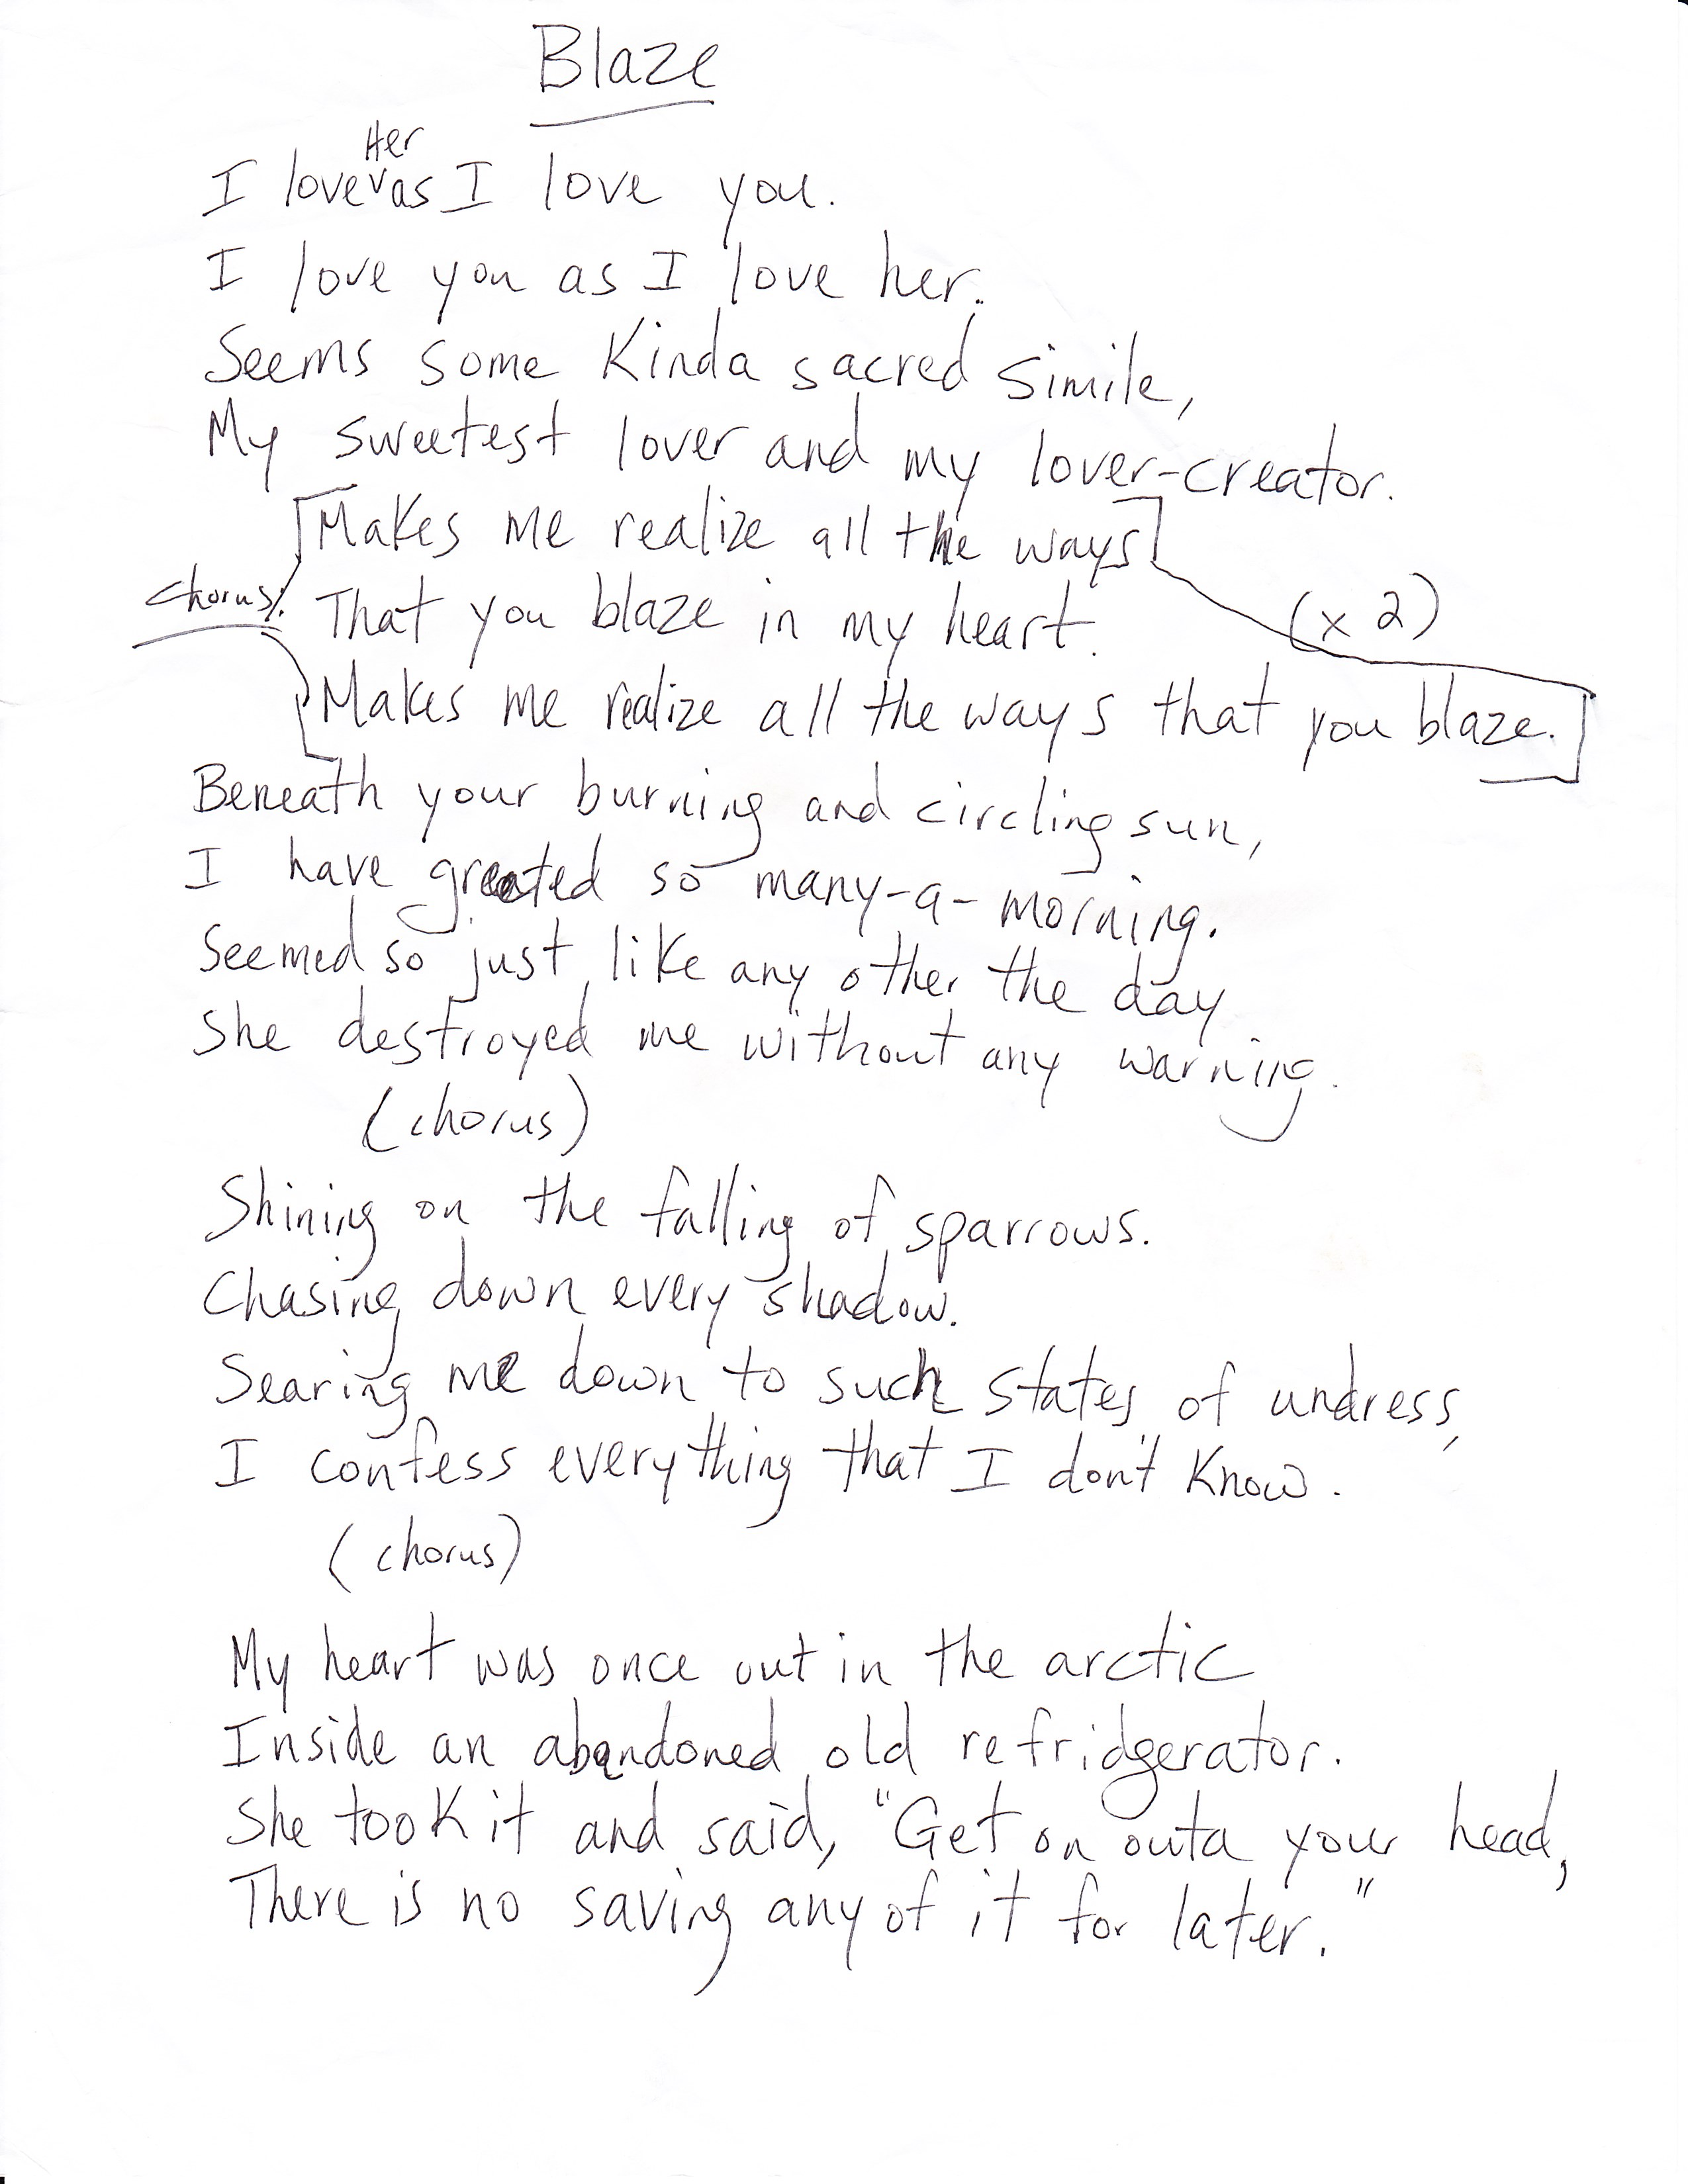 Blaze
I love Her as I love you.
I love you as I love her.
Seems some Kinda sacred simile,
My sweetest lover and my lover-creator.
Makes me realize all the ways
chorus: That you blaze in my heart. (x 2)
Makes me realize all the ways that you blaze.
Beneath your burning and circling sun,
I have greeted so many-a-morning.
Seemed so just like any other the day
She destroyed me without any warning.
(chorus)
Shining on the falling of sparrows.
Chasing down every shadow.
Searing me down to such states of undress,
I confess everything that I don't Know.
(chorus)
My heart was once out in the arctic
Inside an abandoned old refridgerator.
She took it and said, "Get on outa your head,
There is no saving any of it for later."